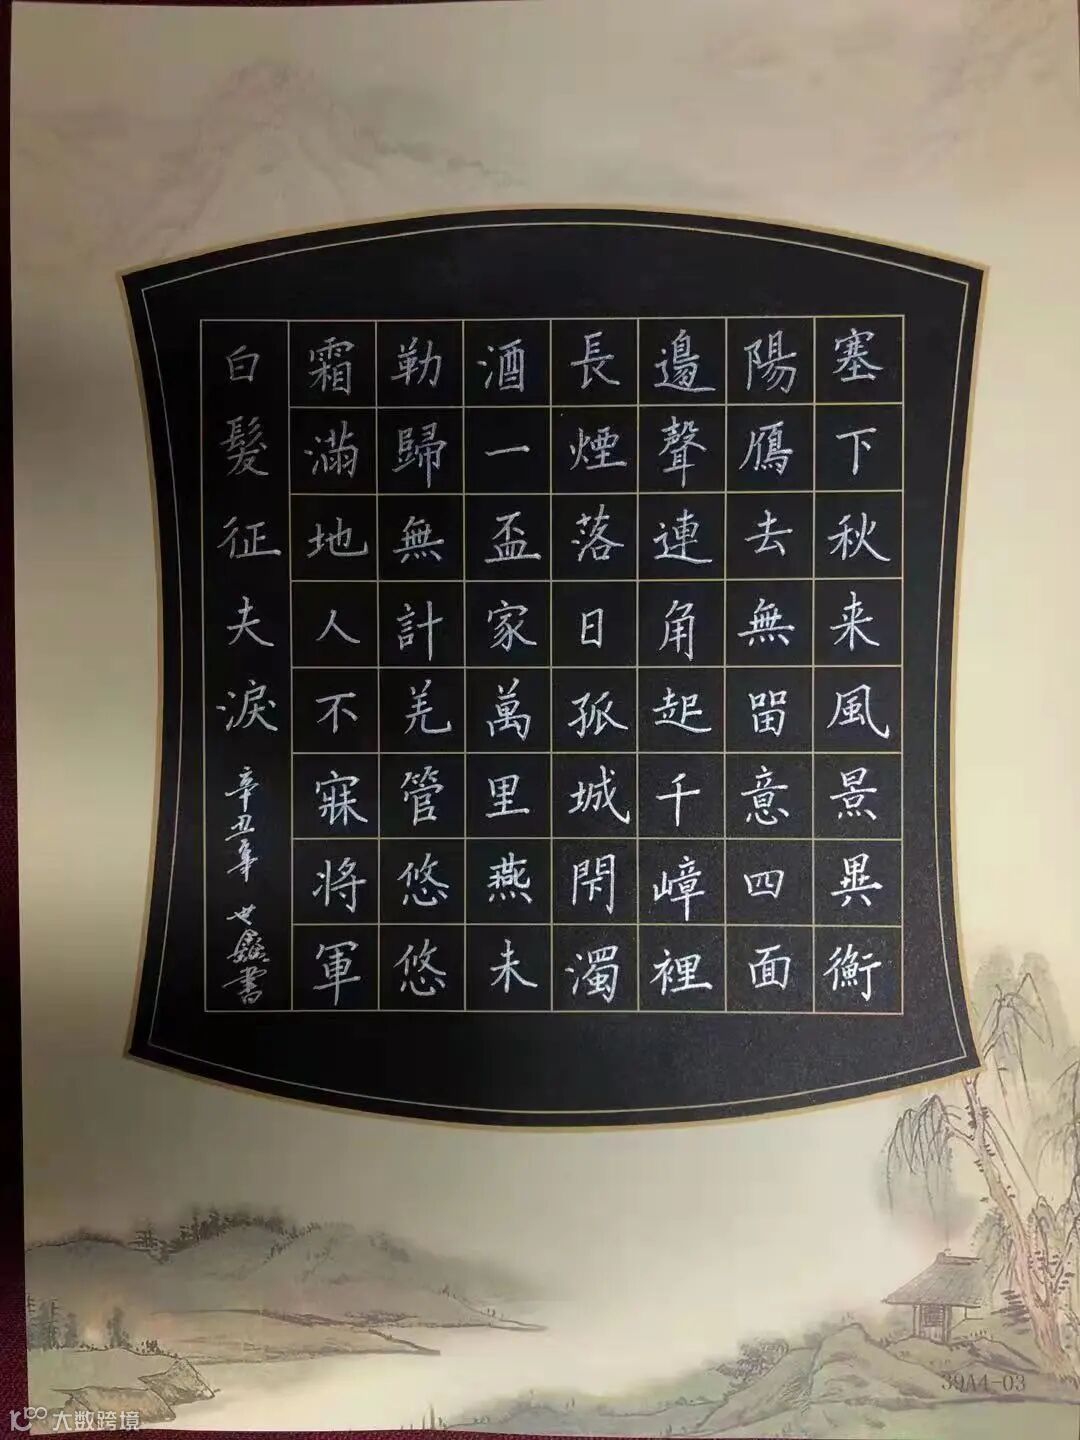 塞下秋来風景異衡
陽鴈去無畱意四面
邊聲連角起千嶂裡
長煙落日孤城閇濁
酒一盃家萬里燕未
勒歸無計羌管悠悠
霜滿地人不寐将軍
白髮征夫淚
辛丑年 世鑫書
39A4-03
大数跨境